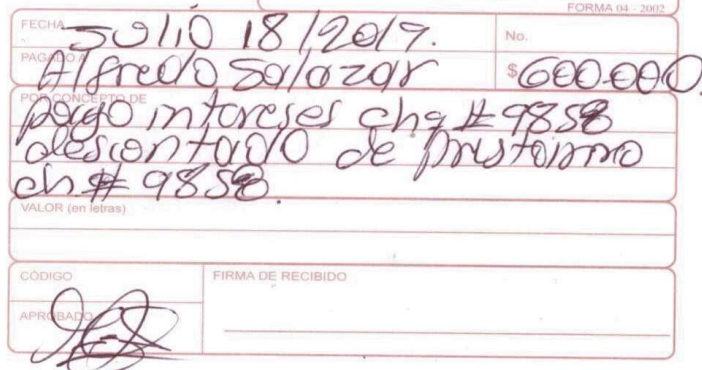 FORMA 04 - 2002
FECHA Julio 18/2019.
No.
PAGADO A Alfredo Salazar
$600.000
POR CONCEPTO DE
pago intereses chq #9858
descontado de prestamo
ch# 9858.
VALOR (en letras)
CÓDIGO
FIRMA DE RECIBIDO
APROBADO